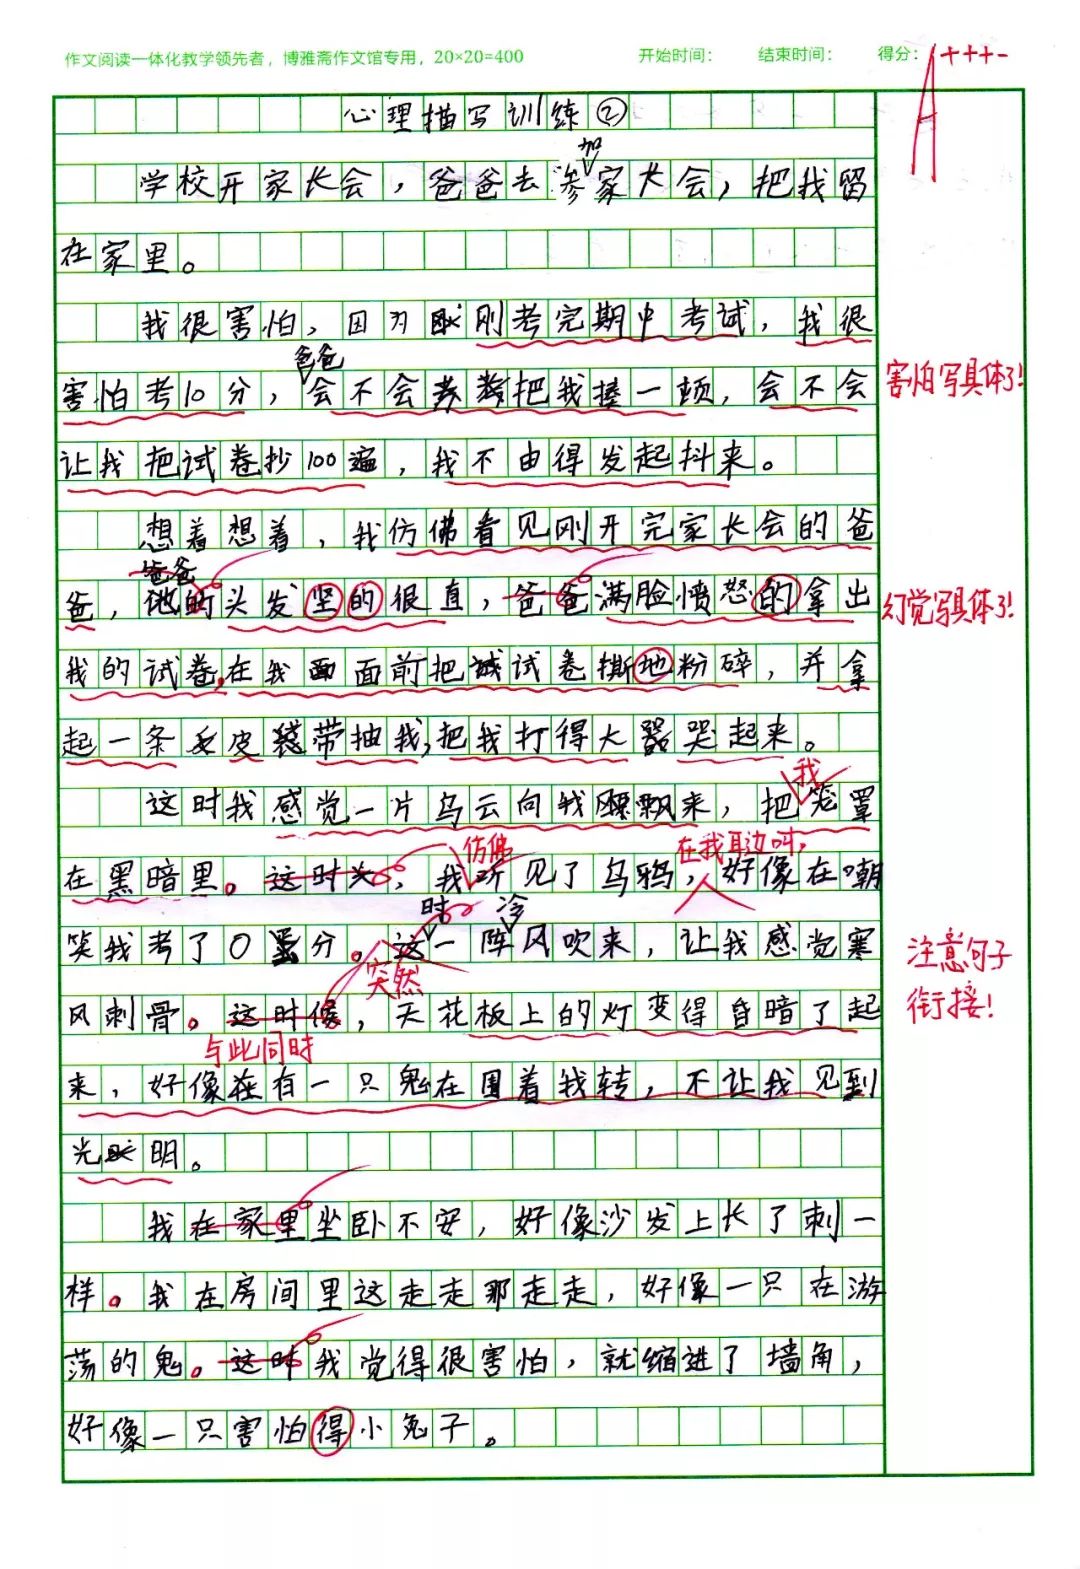 作文阅读一体化教学领先者，博雅斋作文馆专用，20×20=400 开始时间： 结束时间： 得分：A+++-
心理描写训练②
加
学校开家长会，爸爸去参家长会，把我留
在家里。
我很害怕，因为刚考完期中考试，我很
爸爸
害怕考10分，会不会把我揍一顿，会不会
害怕写具体了！
让我把试卷抄100遍，我不由得发起抖来。
想着想着，我仿佛看见刚开完家长会的爸
爸爸
爸，他的头发坚的很直，爸爸满脸愤怒的拿出
幻觉写具体了！
我的试卷，在我面前把试卷撕地粉碎，并拿
起一条皮带抽我，把我打得大器哭起来。
我
这时我感觉一片乌云向我飘来，把笼罩
仿佛 在我耳边叫，
在黑暗里。这时头，我听见了乌鸦，好像在嘲
时 冷
笑我考了0分。这一阵风吹来，让我感觉寒
突然
注意句子
衔接！
风刺骨。这时候，天花板上的灯变得昏暗了起
与此同时
来，好像在有一只鬼在围着我转，不让我见到
光明。
我在家里坐卧不安，好像沙发上长了刺一
样。我在房间里这走走那走走，好像一只在游
荡的鬼。这时我觉得很害怕，就缩进了墙角，
好像一只害怕得小兔子。